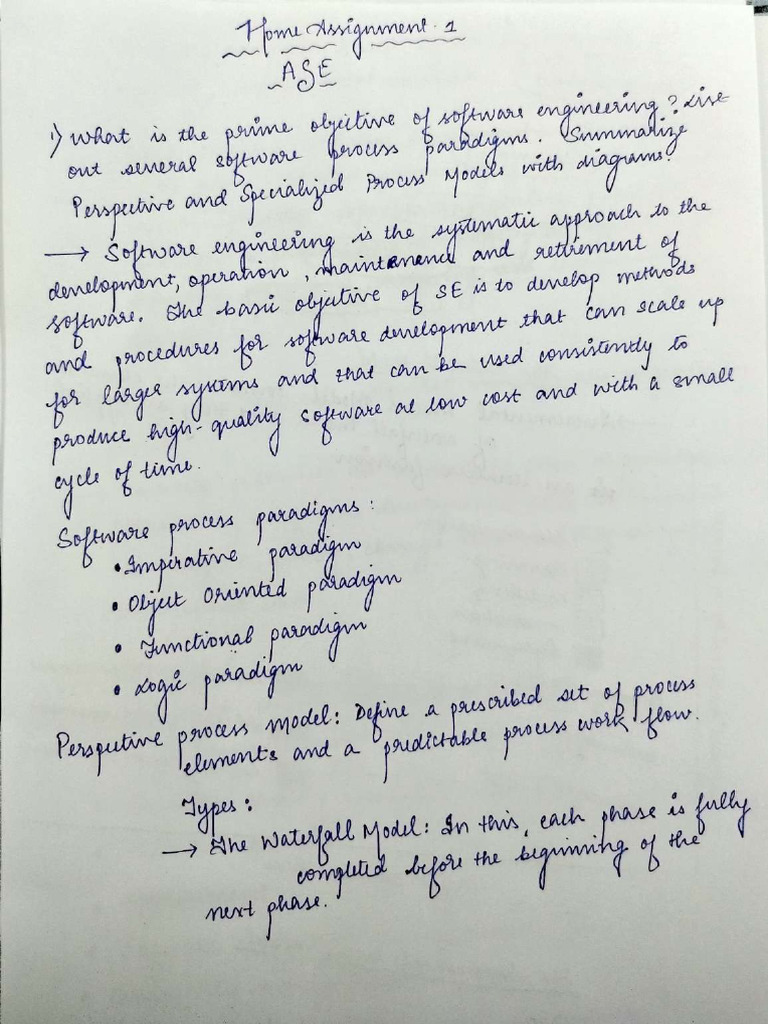 Home Assignment 1
ASE
1) What is the prime objective of software engineering? List
out several software process paradigms. Summarize
Perspective and Specialized Process Models with diagrams?
→ Software engineering is the systematic approach to the
development, operation, maintenance and retirement of
software. The basic objective of SE is to develop methods
and procedures for software development that can scale up
for larger systems and that can be used consistently to
produce high-quality software at low cost and with a small
cycle of time.
Software process paradigms:
• Imperative paradigm
• Object Oriented paradigm
• Functional paradigm
• Logic paradigm
Perspective process model: Define a prescribed set of process
elements and a predictable process work flow.
Types:
→ The Waterfall Model: In this, each phase is fully
completed before the beginning of the
next phase.